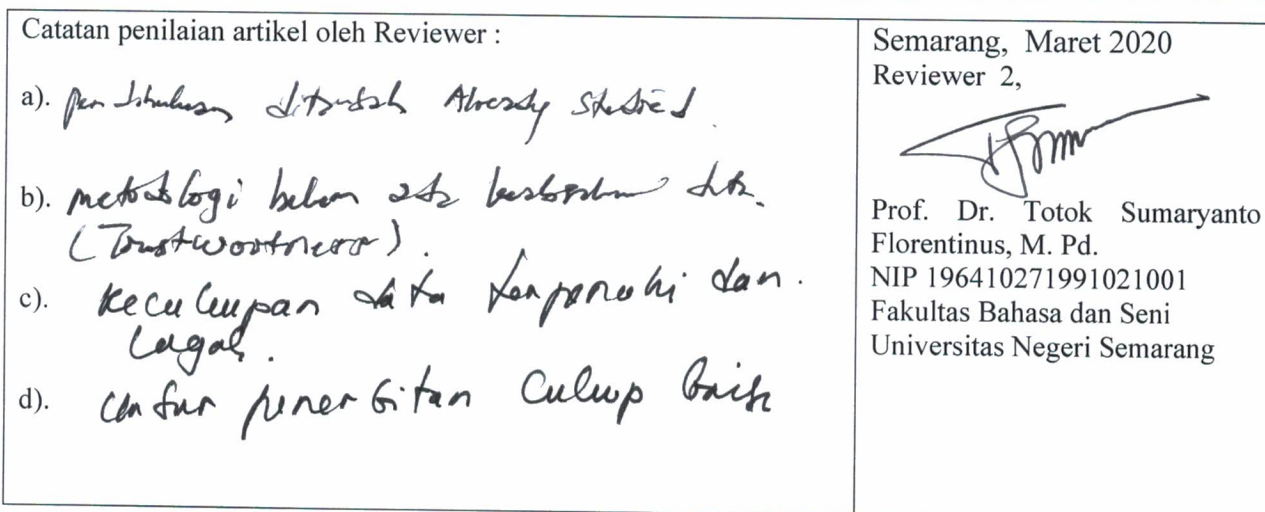 Catatan penilaian artikel oleh Reviewer :
a). pendahuluan ditambah Already studied.
b). metodologi belum ada keabsahan data.
(Trustwortness).
c). Kecukupan data terpenuhi dan.
Lugas.
d). unsur penerbitan Cukup baik
Semarang, Maret 2020
Reviewer 2,
Prof. Dr. Totok Sumaryanto
Florentinus, M. Pd.
NIP 196410271991021001
Fakultas Bahasa dan Seni
Universitas Negeri Semarang